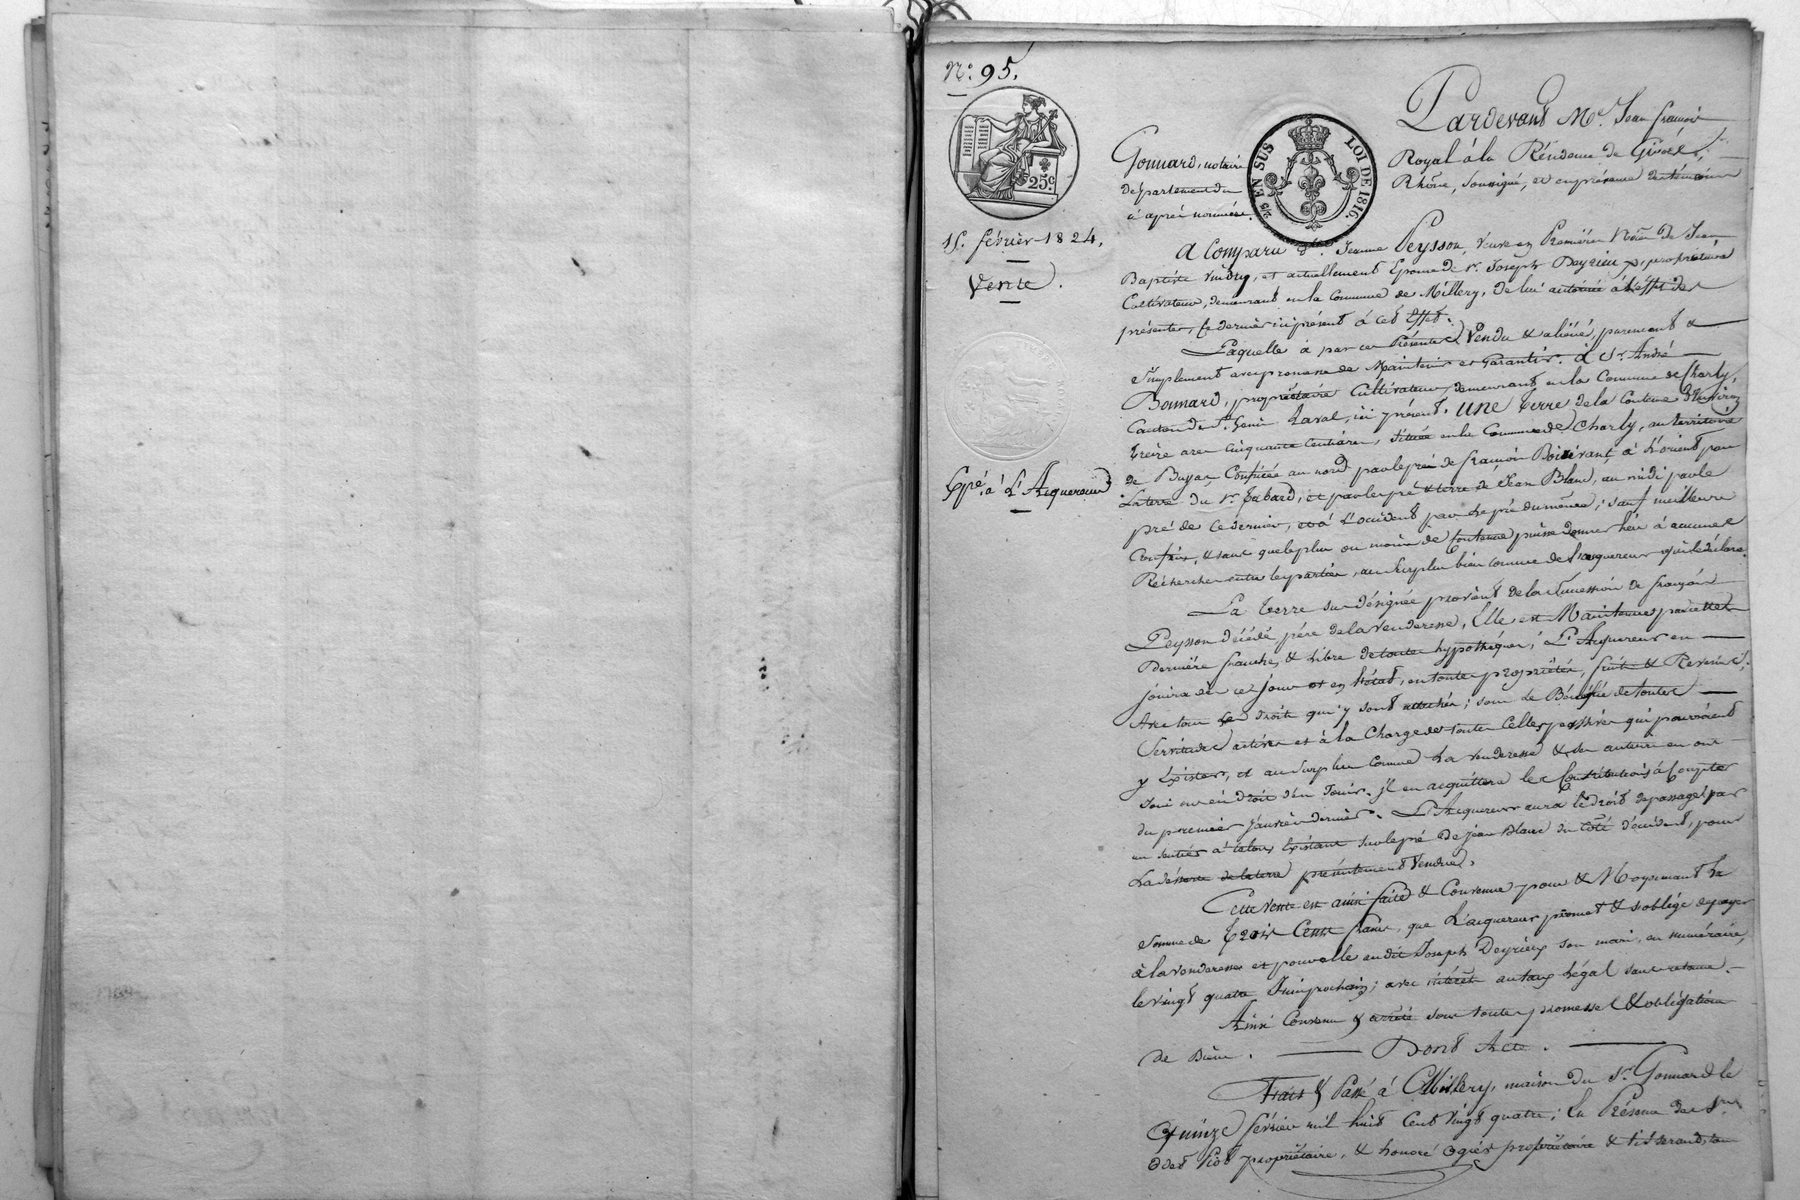 N.° 95.
25.c
15. février 1824.
Vente.
Expé. à l'Acquereur
2/5 EN SUS LOI DE 1816.
Pardevant M.e Jean françois
Gonnard, notaire Royal à la Résidence de Givors,
département du Rhône, soussigné, et en présence des témoins
ci après nommés.
A Comparu d.e Jeanne Peysson, Veuve en Premières Nôces de Jean
Baptiste Vindry, et actuellement Epouse de s.r Joseph Deyrieux, propriétaire
Cultivateur, demeurant en la Commune de Millery, de lui autorisée à l'effet des
présentes, ce dernier ici présent à cet effet.
Laquelle à par ces Présentes Vendu & aliéné, purement &
simplement avec promesse de Maintenir et Garantir. à S.r André
Bonnard, propriétaire Cultivateur demeurant en la Commune de Charly,
Canton de S.t Genis Laval, ici présent. Une Terre de la Contenue d'Environ
treize ares cinquante centiares, située en la Commune de Charly, au territoire
de Confinée au nord par le pré de françois Boiron à l'orient par
la terre du s.r Jabard, et par le pré & terre de Jean Blanc, au midi par le
pré de ce dernier, et à l'occident par le pré du même; sauf meilleurs
Confins, & sans que le plus ou moins de Contenue puisse donner lieu à aucunes
Recherches entre les parties, au surplus bien connue de l'acquereur qui le déclare.
La terre sus désignée provient de la succession de françois
Peysson décédé père de la venderesse, Elle est Maintenue par cette
Dernière franche, & libre de toutes hypothèques; L'Acquereur en
jouira dès ce jour en l'état, en toutes propriétés, fruits & Revenus,
Avec tous les droits qui y sont attachés; sous le Bénéfice de toutes
Servitudes actives et à la Charge de toutes Celles passives qui pourroient
y Exister, et au surplus comme la venderesse & ses auteurs en ont
joui ou eu droit d'en Jouir. il en acquittera les Contributions à Compter
du premier Janvier dernier. L'Acquereur aura le droit de passage par
un sentier à talons Existant sur le pré de Jean Blanc du côté d'occident, pour
la desserte de la terre présentement Vendue.
Cette vente est ainsi faite & Convenue pour & Moyennant la
Somme de Trois Cents francs, que l'acquereur promet & s'oblige de payer
à la venderesse et pour elle audit Joseph Deyrieux son mari, en numéraire,
le vingt quatre Juin prochain; avec intérêts au taux légal sans retenue.
Ainsi Convenu & arrêté sous toutes promesses & obligations
de Biens. Dont Acte.
Fait & Passé à Millery, maison du S.r Gonnard le
Quinze février mil huit Cent Vingt quatre; En Présence des S.rs
Piot propriétaire, & honoré Ogier propriétaire & tisserand, tous